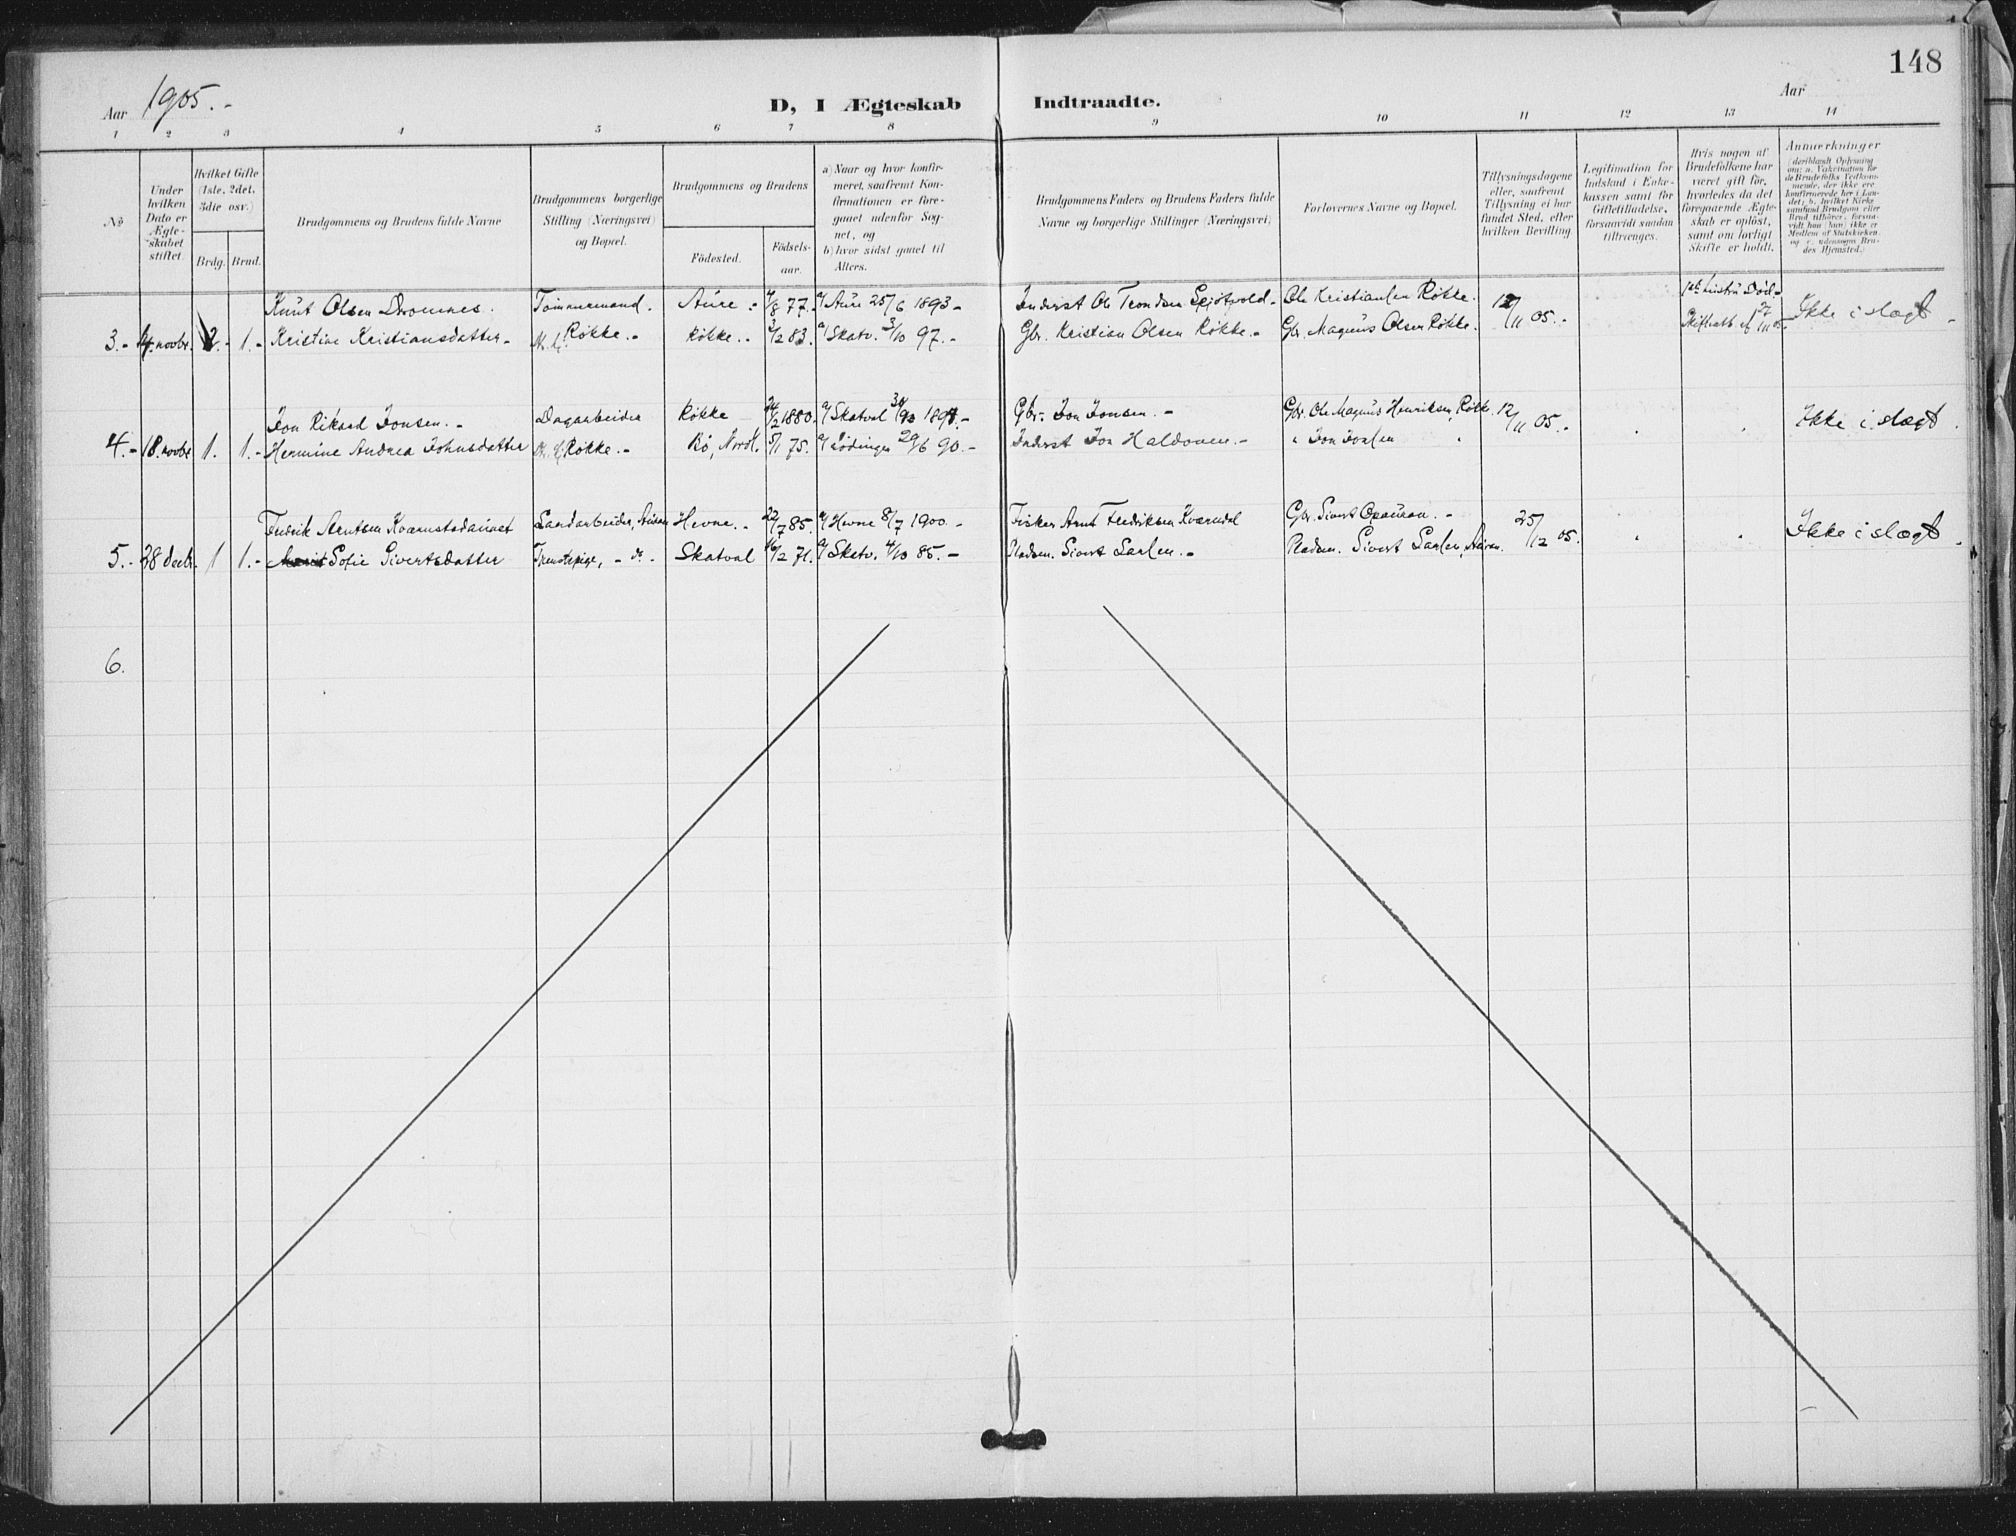 148
Aar 1905.-
D, I Ægteskab Indtraadte.
Aar
1 2 3 4 5 6 7 8 9 10 11 12 13 14
No
Under hvilken Dato er Ægteskabet stiftet.
Hvilket Gifte (1ste, 2det, 3die osv.)
Brdg. Brud.
Brudgommens og Brudens fulde Navne
Brudgommens borgerlige Stilling (Næringsvei) og Bopæl.
Brudgommens og Brudens
Födested. Födselsaar.
a) Naar og hvor konfirmeret, saafremt Konfirmationen er foregaaet udenfor Sognet, og
b) hvor sidst gaaet til Alters.
Brudgommens Faders og Brudens Faders fulde Navne og borgerlige Stillinger (Næringsvei)
Forlovernes Navne og Bopæl.
Tillysningsdagene eller, saafremt Tillysning ei har fundet Sted, efter hvilken Bevilling
Legitimation for Indskud i Enkekassen samt for Giftetilladelse, forsaavidt saadan tiltrænges.
Hvis nogen af Brudefolkene har været gift för, hvorledes da det foregaaende Ægteskab er oplöst, samt om lovligt Skifte er holdt.
Anmærkninger
(deriblandt Oplysning om: a. Vakcination for de Brudefolks Vedkommende, der ikke ere konfirmerede her i Landet; b. hvilket Kirkesamfund Brudgom eller Brud tilhörer, forsaavidt han (hun) ikke er Medlem af Statskirken, og c. udensogns Brudes Hjemsted.)
Knut Olsen Dromnes. Tömmermand. Aure. 4/8 77. a/ Aure 25/6 1893 - Inderst Ole Trondsen Skjötvold - Ole Kristiansen Røkke. 12/11 05. 1ste hustru Död - Ikke i slægt
3. - 14. novbr. 2. - 1. - Kristine Kristiansdatter - Røkke. - Røkke. - 3/2 83. a/ Skatv. 3/10 97. - Gbr. Kristian Olsen Røkke. - Gbr. Magnus Olsen Røkke.
Jon Rikard Jonsen. - Dagarbeider Røkke 24/2 1880. a/ Skatval 1894. - Gbr. - Jon Jonsen. - Gbr. Ole Magnus Henriksen, Røkk. 12/11 05. - Ikke i slægt.
4. - 18. novbr. 1. 1. - Hermine Andrea Johnsdatter Røkke. - Bö, Nordl. 5/1 75. a/ Lödingen 29/6 90. - Inderst Jon Haldorsen. - " Jon Jonsen "
Fredrik Arntsen Kvernstadaunet Landarbeider, Auran Hevne. - 22/7 85. a/ Hevne 8/7 1900. - Fisker Arnt Fredriksen Kverndal Gbr. Sivert Opauran. - 25/12 05. Ikke i slægt.
5. - 28 decbr. 1 1. - Sofie Sivertsdatter Tjenstepige, - do - Skatval 16/2 71. a/ Skatv. 4/10 85. - Pladsm. Sivert Larsen. - Pladsm. Sivert Larsen, Auran.
6.